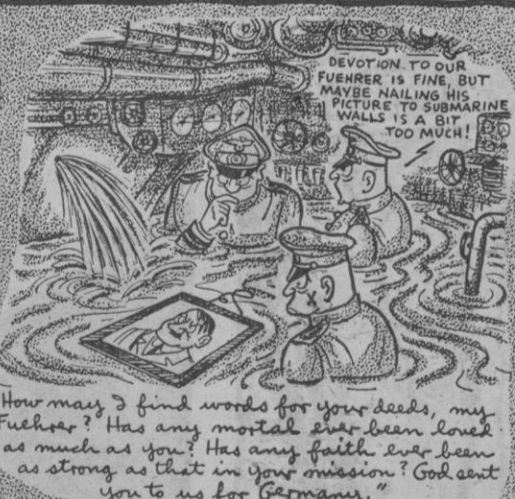 DEVOTION TO OUR
FUEHRER IS FINE, BUT
MAYBE NAILING HIS
PICTURE TO SUBMARINE
WALLS IS A BIT
TOO MUCH!
How may I find words for your deeds, my
Fuehrer? Has any mortal ever been loved
as much as you? Has any faith ever been
as strong as that in your mission? God sent
you to us for Germany."